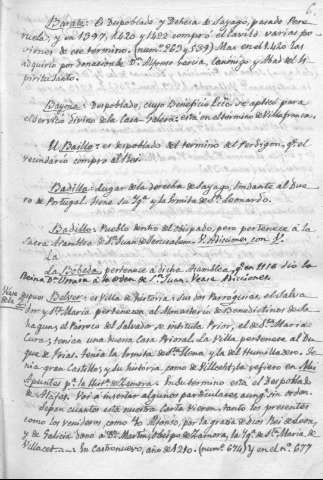 6.
Barate: Es Despoblado y Dehesa de Sayago, pasado Pere-
ruela, y en 1397, 1420 y 1422 compró el Cavildo varias po-
siones de ese termino. (num.s 263 y 539) Mas en el 1420 las
adquirió por donacion de Dn. Alfonso Garcia, Canonigo y Abad del S.
Spiritu Santo.
Bayona: Despoblado, cuyo Beneficio se aplicó para
el servicio divino de la Casa Galera: está en el termino de Villafranca.
El Baillo: es despoblado del termino del Perdigon, q.e el
vecindario compro al Rei.
Badilla: lugar de la derecha de Sayago, lindante al Due-
ro de Portugal, tiene su Yg.a y la hermita de Sn. Leonardo.
Badillo: Pueblo dentro del Obispado, pero pertenece a la
Sacra Asamblea de Sn. Juan de Jerusalem. V. Adiciones con V.
La
La Bobeda pertenece a dicha Asamblea, q.e en 1116 dio la
Reina D.a Urraca a la orden de Sn. Juan. Vease Adiciones.
Belver: es Villa de historia, sus dos Parroquias, el Salva-
dor y Sta. Maria pertenecen al Monasterio de Benedictinos de Sa-
hagun; el Parroco del Salvador se intitula Prior, el de Sta. Maria
Cura; tenia una buena Casa Prioral. La Villa pertenece al Du-
que de Frias. Tenia la hermita de Sta. Elena y la del Humilladero. Te-
nia gran Castillo; y su historia, como de Villalil, la refiero en Mis
Apuntes p.a la Hist.a de Zamora. En su termino está el Despoblado
de Alafes. Voi a insertar algunos particulares aunq.e sin orden.
Sepan cuantos esta nuestra Carta vieren, tanto los presentes
como los venideros como Yo Alfonso, por la gracia de Dios Rei de Leon,
y de Galicia dono a Dn. Martin, Obispo de Zamora, la Yg.a de Sta. Maria de
Villacetra... En Castronuevo, año de 1210. (num.o 674) Y en el n.o 677